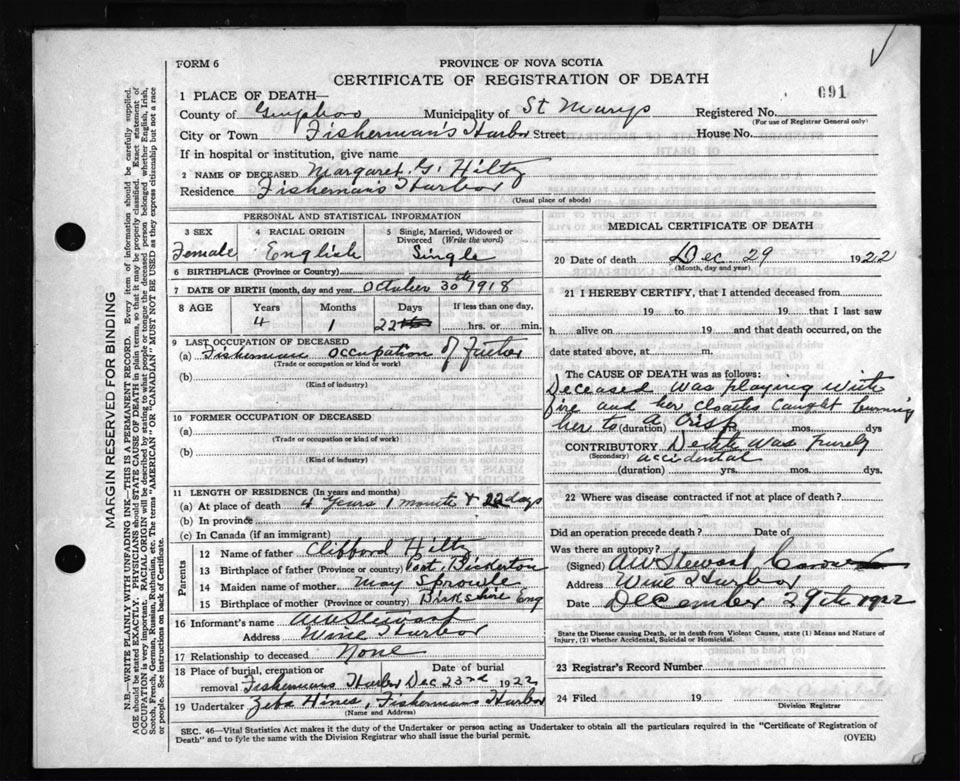 FORM 6
PROVINCE OF NOVA SCOTIA
CERTIFICATE OF REGISTRATION OF DEATH
691
1 PLACE OF DEATH—
County of Guysboro Municipality of St Marys Registered No.
(For use of Registrar General only)
City or Town Fisherman's Harbor Street House No.
If in hospital or institution, give name
2 NAME OF DECEASED Margaret G. Hiltz
Residence Fishermans Harbor
(Usual place of abode)
PERSONAL AND STATISTICAL INFORMATION
3 SEX 4 RACIAL ORIGIN 5 Single, Married, Widowed or Divorced (Write the word)
Female English Single
6 BIRTHPLACE (Province or Country)
7 DATE OF BIRTH (month, day and year) October 30th 1918
8 AGE Years Months Days If less than one day,
4 1 22 hrs. or min.
9 LAST OCCUPATION OF DECEASED
(a) Fisherman Occupation of Father
(Trade or occupation or kind of work)
(b)
(Kind of industry)
10 FORMER OCCUPATION OF DECEASED
(a)
(Trade or occupation or kind of work)
(b)
(Kind of industry)
11 LENGTH OF RESIDENCE (In years and months)
(a) At place of death 4 years 1 month & 22 days
(b) In province
(c) In Canada (if an immigrant)
Parents
12 Name of father Clifford Hiltz
13 Birthplace of father (Province or country) East Bickerton
14 Maiden name of mother May Sprowle
15 Birthplace of mother (Province or country) Eng
16 Informant's name AW Stewart
Address Wine Harbor
17 Relationship to deceased None
18 Place of burial, cremation or removal Fishermans Harbor Date of burial Dec 23rd 1922
19 Undertaker Zeba Hines, Fishermans Harbor
(Name and Address)
MEDICAL CERTIFICATE OF DEATH
20 Date of death Dec 29 1922
(Month, day and year)
21 I HEREBY CERTIFY, that I attended deceased from
19 to 19 that I last saw
h alive on 19 and that death occurred, on the
date stated above, at m.
The CAUSE OF DEATH was as follows:
Deceased was playing with
fire and her cloaths caught burning
her to a crisp
(duration) yrs. mos. dys
CONTRIBUTORY Death was purely
(Secondary) accidental
(duration) yrs. mos. dys.
22 Where was disease contracted if not at place of death?
Did an operation precede death? Date of
Was there an autopsy?
(Signed) AW Stewart Coroner
Address Wine Harbor
Date December 29th 1922
State the Disease causing Death, or in death from Violent Causes, state (1) Means and Nature of
Injury, (2) whether Accidental, Suicidal or Homicidal.
23 Registrar's Record Number
24 Filed 19
Division Registrar
SEC. 46—Vital Statistics Act makes it the duty of the Undertaker or person acting as Undertaker to obtain all the particulars required in the "Certificate of Registration of
Death" and to fyle the same with the Division Registrar who shall issue the burial permit.
(OVER)
MARGIN RESERVED FOR BINDING
N.B.—WRITE PLAINLY WITH UNFADING INK—THIS IS A PERMANENT RECORD. Every item of information should be carefully supplied.
AGE should be stated EXACTLY. PHYSICIANS should STATE CAUSE OF DEATH in plain terms, so that it may be properly classified. Exact statement of
OCCUPATION is very important. RACIAL ORIGIN will be described by stating to what people or tongue the deceased person belonged whether English, Irish,
Scotch, French, German, Russian, Ruthenian, etc. The terms "AMERICAN" or "CANADIAN" MUST NOT BE USED as they express citizenship but not a race
or people. See instructions on back of Certificate.